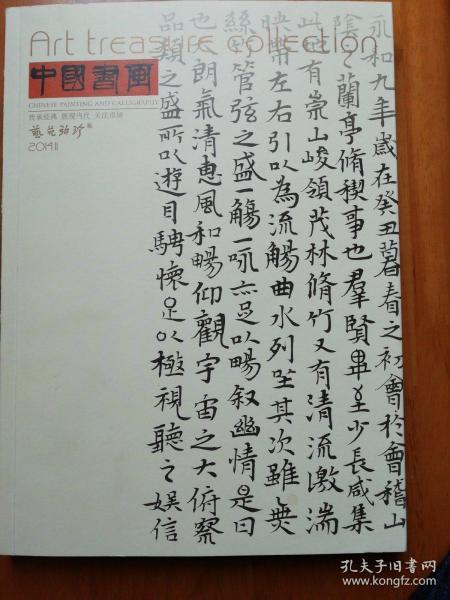 Art treasure collection
中國書画
CHINESE PAINTING AND CALLIGRAPHY
传承经典 展现当代 关注市场
2014.11
永和九年歲在癸丑暮春之初會於會稽山
陰之蘭亭脩稧事也羣賢畢至少長咸集
此地有崇山峻領茂林脩竹又有清流激湍
映帶左右引以為流觴曲水列坐其次雖無
絲竹管弦之盛一觴一詠亦足以暢叙幽情是日
也天朗氣清惠風和暢仰觀宇宙之大俯察
品類之盛所以遊目騁懷足以極視聽之娛信
孔夫子旧书网
www.kongfz.com